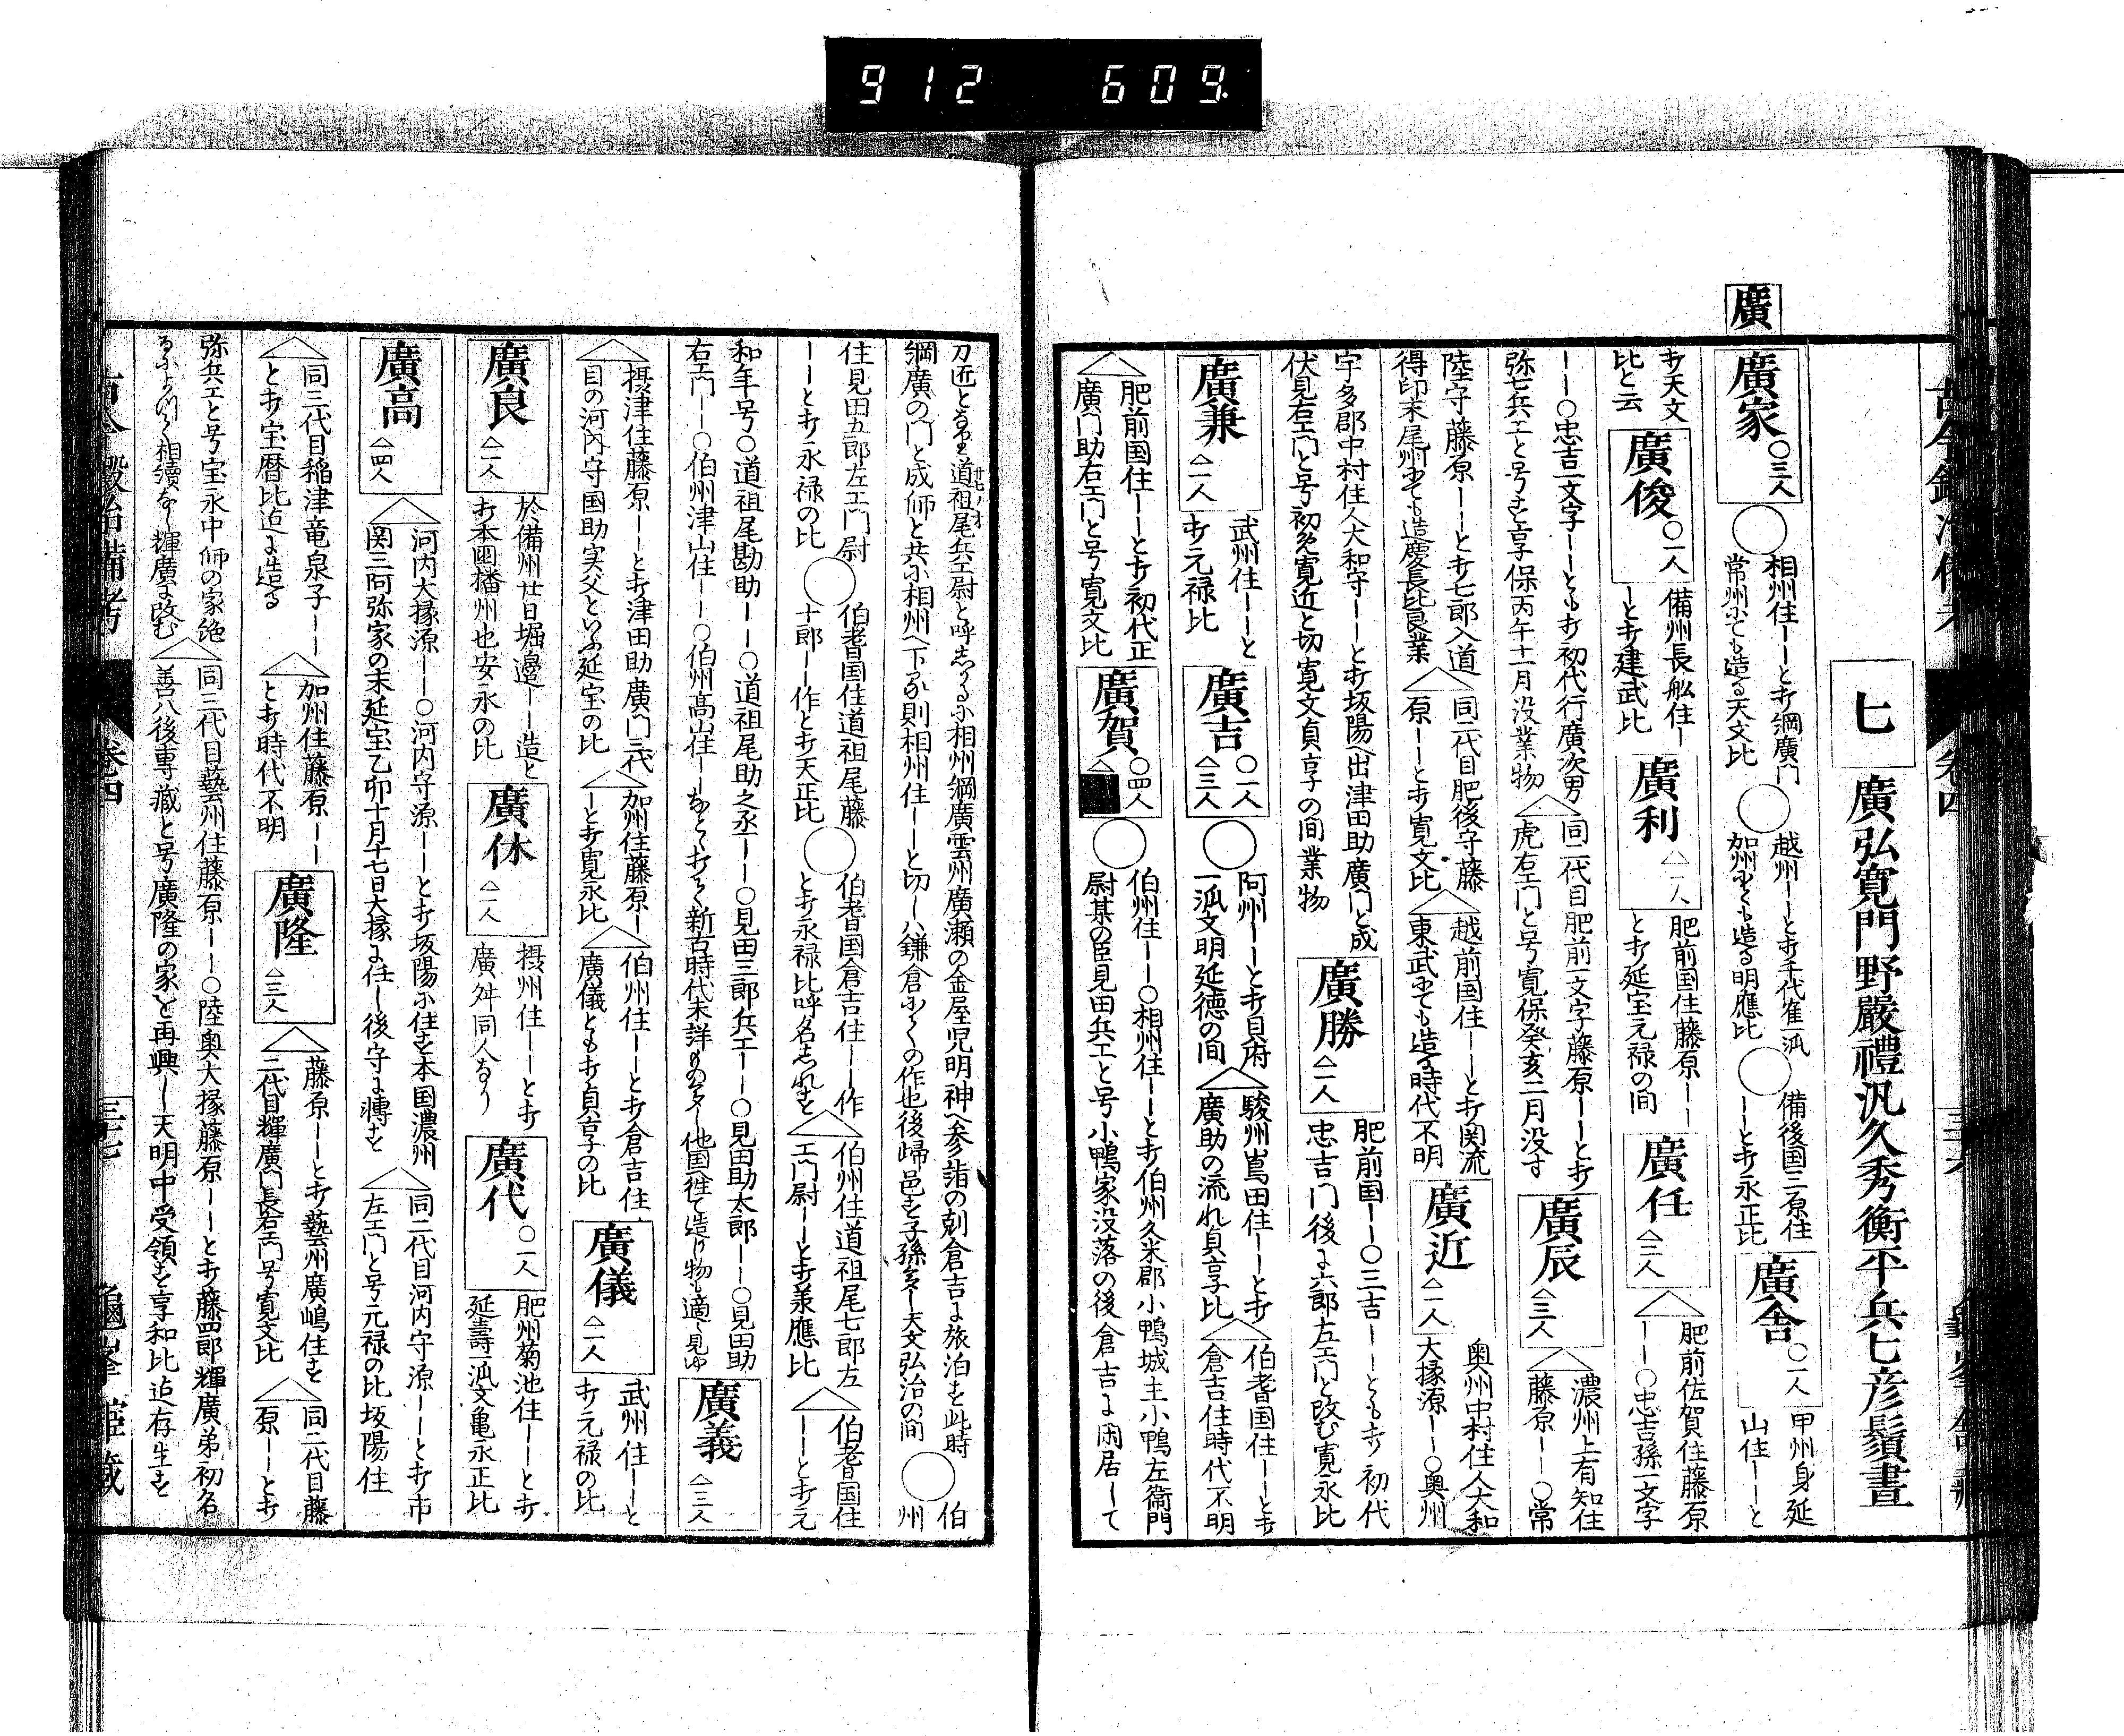 912 609
廣
巻四
七 廣弘寛門野嚴禮汎久秀衡平兵七彦鬚晝
廣家 ○三人
○相州住ーーと打綱廣門
常州にても造る天文比
○越州ーーと打千代隺一派
加州にても造る明應比
○備後国三原住
ーーと打永正比
廣舎 ○一人
甲州身延
山住ーーと
打天文
比と云
廣俊 ○一人
備州長舩住ー
ーと打建武比
廣利 △一人
肥前国住藤原ーー
と打延宝元禄の間
廣任 △三人
△肥前佐賀住藤原
ーー○忠吉孫一文字
ーー○忠吉一文字ーーとも打初代行廣次男
弥七兵エと号す享保丙午十一月没業物
△同二代目肥前一文字藤原ーーと打
虎右エ門と号寛保癸亥二月没す
廣辰 △三人
△濃州上有知住
藤原ーー○常
陸守藤原ーーと打七郎入道
得印末尾州にても造慶長比良業
△同二代目肥後守藤
原ーーと打寛文比
△越前国住ーーと打関流
東武にても造る時代不明
廣近 △一人
奥州中村住人大和
大掾源ーー○奥州
宇多郡中村住人大和守ーーと打坂陽へ出津田助廣門と成
伏見右エ門と号初め寛近と切寛文貞享の間業物
廣勝 △一人
肥前国ーー○三吉ーーとも打初代
忠吉門後に六郎左エ門と改む寛永比
廣兼 △一人
武州住ーーと
打元禄比
廣吉 ○一人 △三人
○阿州ーーと打貝府
一派文明延徳の間
△駿州嶌田住ーーと打
廣助の流れ貞享比
△伯耆国住ーーと打
倉吉住時代不明
△肥前国住ーーと打初代正
廣門助右エ門と号寛文比
廣賀 ○四人
○伯州住ーー○相州住ーーと打伯州久米郡小鴨城主小鴨左衞門
尉某の臣見田兵エと号小鴨家没落の後倉吉に閑居して
刀匠となる道祖尾兵エ尉と呼しかるに相州綱廣雲州廣瀬の金屋児明神へ参詣の刻倉吉に旅泊す此時
綱廣の門と成師と共に相州へ下る則相州住ーーと切ーハ鎌倉にての作也後歸邑す子孫多ー天文弘治の間
○伯
州
住見田五郎左エ門尉
ーーと打永禄の比
○伯耆国住道祖尾藤
十郎ーー作と打天正比
○伯耆国倉吉住ーー作
と打永禄比呼名しれす
△伯州住道祖尾七郎左
エ門尉ーーと打羕應比
△伯耆国住
ーーと打元
和年号○道祖尾勘助ーー○道祖尾助之丞ーー○見田三郎兵エーー○見田助太郎ーー○見田助
右エ門ーー○伯州津山住ーー○伯州髙山住ーーなと打て新古時代未詳もの多ー他国へ徃て造り物も適ー見ゆ
廣義 △三人
△摂津住藤原ーーと打津田助廣門三代
目の河内守国助実父といふ延宝の比
△加州住藤原ー
ーと打寛永比
△伯州住ーーと打倉吉住
廣儀とも打貞享の比
廣儀 △一人
武州住ーーと
打元禄の比
廣良 △一人
於備州廿日堀邉ーー造と
打本国播州也安永の比
廣休 △一人
摂州住ーーと打
廣舛同人なり
廣代 ○一人
肥州菊池住ーーと打
延壽一派文亀永正比
廣高 △四人
△河内大掾源ーー○河内守源ーーと打坂陽に住す本国濃州
関三阿弥家の末延宝乙卯十月十七日大掾に任ー後守に轉す
△同二代目河内守源ーーと打市
左エ門と号元禄の比坂陽住
△同三代目稲津竜泉子ーー
と打宝暦比迠に造る
△加州住藤原ーー
と打時代不明
廣隆 △三人
△藤原ーーと打藝州廣嶋住す
二代目輝廣門長右エ門号寛文比
△同二代目藤
原ーーと打
弥兵エと号宝永中師の家絶
るによつて相續なー輝廣に改む
△同三代目藝州住藤原ーー○陸奥大掾藤原ーーと打藤四郎輝廣弟初名
善八後専藏と号廣隆の家を再興ー天明中受領す享和比迠存生す
古今鍛冶備考
巻四
三十七